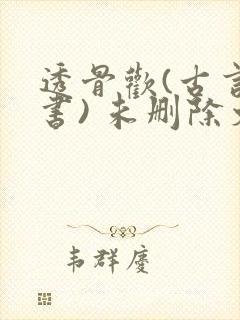 透骨歡(古言
書)未删除
韦群慶